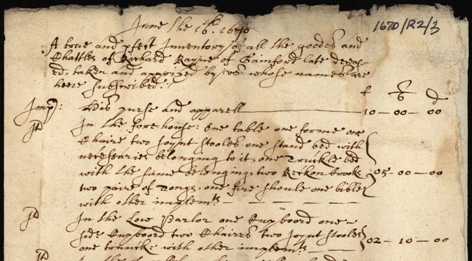 June the 16th 1670
1670/R2/3
A true and pfect Inventory of all the goods and
Chattles of Richard Rayne of Bamford late decea
ed, taken and apprized by us whose names are
here subscribed:
£ s d
Imp: His purse and apparell 10-00-00
It In the fore house: one table one forme one
Chaire two Joynt Stooles one stand bed with
necessaries belonging to it one Truckle bed
with the same belonging; two
two paire of Tongs, one fire shoule one bible 05-00-00
with other implemts
It In the Low Parlor one Cupboord one
side Cupboord two Chaires two Joynt Stooles
one trunke with other implemts 02-10-00